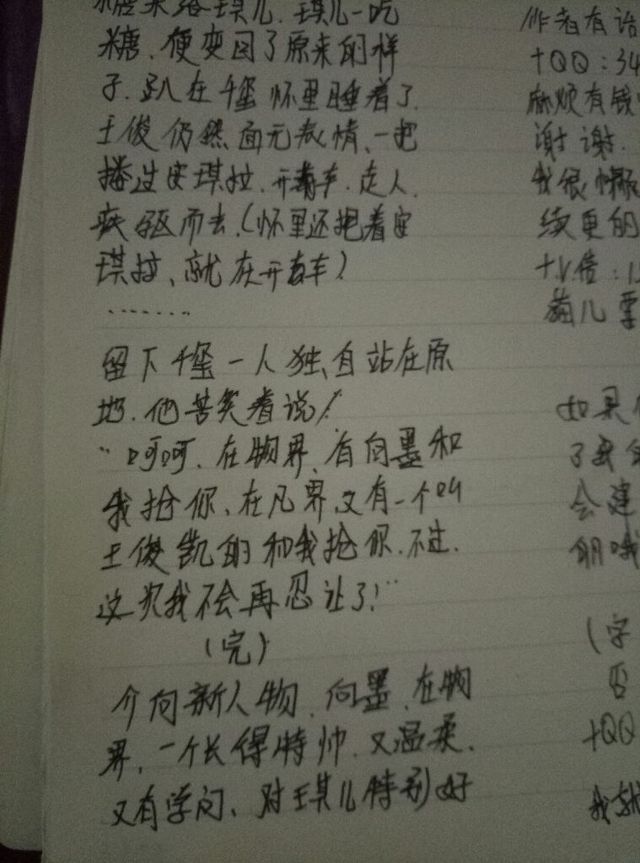 糖来给琪儿.琪儿一吃
糖.便变回了原来的样
子.趴在千玺怀里睡着了.
王俊仍然面无表情.一把
搂过安琪拉.开着车.走人.
疾驱而去.(怀里还抱着安
琪拉、就在开着车)
.......
留下千玺一人独自站在原
地.他苦笑着说!
"呵呵.在物界.有向墨和
我抢你、在凡界又有一个叫
王俊凯的和我抢你.不过.
这次我不会再忍让了!"
(完)
介向新人物.向墨.在物
界.一个长得特帅.又温柔.
又有学问、对琪儿特别好
作者有话
+QQ:34
麻烦有钱
谢谢.
我很懒
续更的
+V信:1
如果
会建
(字
否
+QQ
我